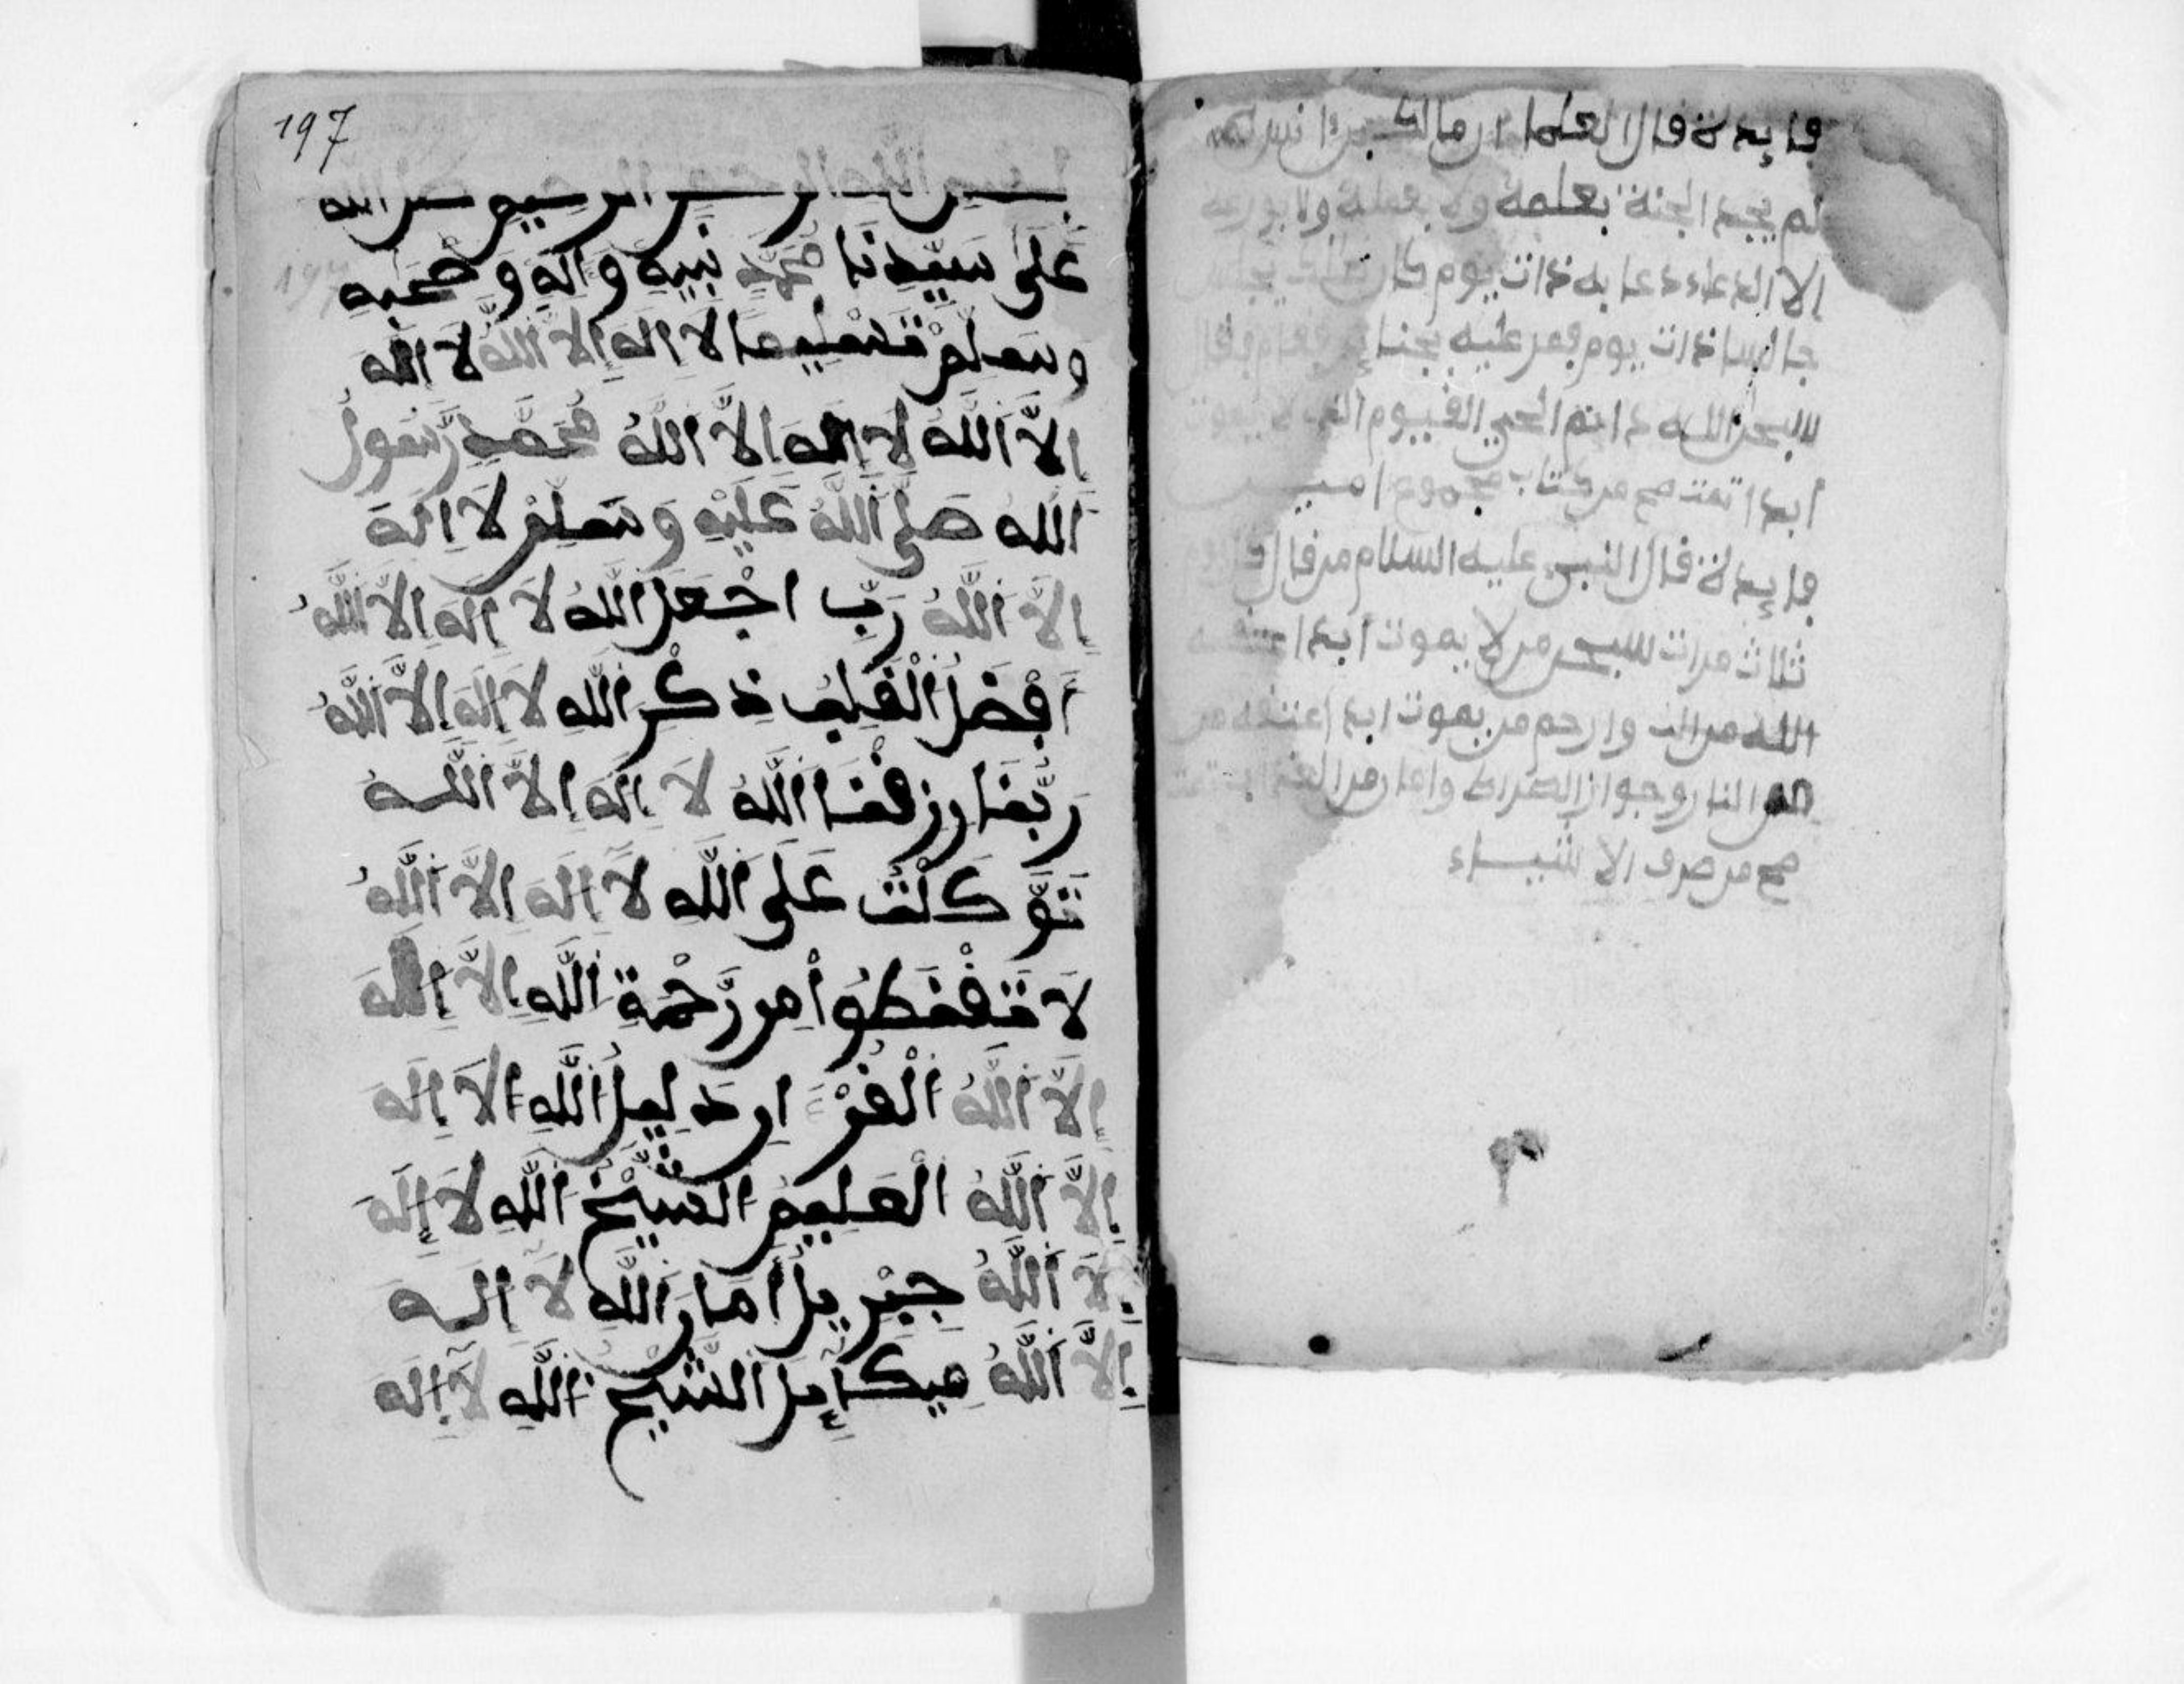 فايدة فال العلما ان مالك بن انس
لم يجد الجنة بعلمه ولا بعمله ولا بورعه
الا الدعاء دعا به ذات يوم كان
جالسا ذات يوم فمر عليه بجنا فقام فقال
سبحن الله دائم الحي الفيوم الذي لا يموت
ابدا تمت صح من كتاب مجموع امين
فايدة فال النبي عليه السلام من فال كل يوم
ثلاث مرات سبحن من لا يموت ابدا
الله من الن وارحم من يموت ابدا اعتفه من
النار وجواز الصراط وامان من العذاب تمت
صح من صرف الا شياء
197
بسم الله الرحمن الرحيم صلى الله
عَلَى سَيِّدِنَا مُحَمَّدٍ نَبِيِهِ وَالِهِ وَصَحْبِهِ
وسلم تسليما لا اله الا الله لا اله
اِلاَّ اَللَّهُ لا اله الاَّ اَللَّهُ مُحَمَّد رَّسُولُ
اَللهِ صَلَّى اَللَّهُ عَلَيْهِ وَسَلَّمْ لاَ اِلَهَ
اِلاَّ اَللَّهُ رَبِّ اجْعَل اَللهُ لاَ اِلَهَ اِلاَّ اَللَّهُ
اَفْضَلُ اَلْفَلْبِ ذِكْرِ اَللهِ لاَ اِلَهَ اِلاَّ اَللَّهُ
رَبَّنَا ارزفنَا اَللَّهُ لاَ اِلَهَ اِلاَّ اَللَّهُ
تَوَّكَلْتُ عَلَى اَللَّهِ لاَ اِلَهَ اِلاَّ اَللَّهُ
لاَ تَفْنَطُوا مِن رَّحْمَةِ اَللَّهِ اِلاَّ اِلَهَ
اِلاَّ اَللَّهُ اَلْفُرْءَ انِ دَلِيلُ اَللَّهِ الاَ اِلَهَ
اِلاَّ اَللَّهُ الْعَلِيمُ الشَّيْخُ اَللَّهِ لاَ اِلَهَ
اِلاَّ اَللَّهُ جِبْرِيلُ اَمَانَ اَللَّهِ لاَ اِلَهَ
اِلاَّ اَللَّهُ مِيكَاءِيلَ الشَّيْخُ اَللَّهِ لاَ اِلَهَ